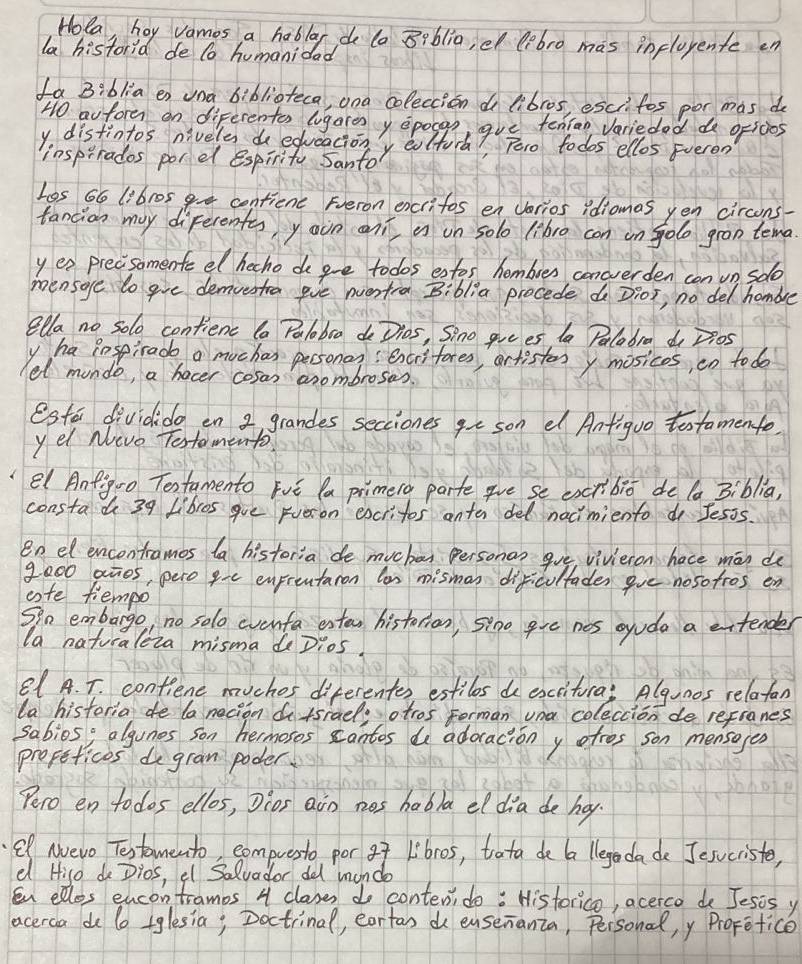 Hola, hoy vamos a hablar de la Biblia, el libro más influyente en
la historia de la humanidad
La Biblia es una biblioteca, una colección de libros, escritos por mas de
40 autores en diferentes lugares y épocas, que tenían variedad de oficios
y distintos niveles de educación y cultura, Pero todos ellos fueron
inspirados por el Espíritu Santo
Los 66 libros que contiene fueron escritos en varios idiomas y en circuns-
tancias muy diferentes, y aún así, es un solo libro con un solo gran tema.
y es precisamente el hecho de que todos estos hombres concuerden con un solo
mensaje lo que demuestra que nuestra Biblia procede de Dios, no del hombre
Ella no solo contiene la Palabra de Dios, Sino que es la Palabra de Dios
y ha inspirado a muchas personas: Escritores, artistas y músicos, en todo
el mundo, a hacer cosas asombrosas.
Está dividido en 2 grandes secciones que son el Antiguo testamento
y el Nuevo Testamento.
El Antiguo Testamento Fué la primera parte que se escribió de la Biblia,
consta de 39 Libros que fueron escritos antes del nacimiento de Jesús.
En el encontramos la historia de muchas Personas que vivieron hace más de
2000 años, pero que enfrentaron las mismas dificultades que nosotros en
este tiempo
Sin embargo, no solo cuenta estas historias, Sino que nos ayuda a entender
la naturaleza misma de Dios.
El A.T. contiene muchos diferentes estilos de escritura: Algunos relatan
la historia de la nación de Israel; otros forman una colección de refranes
sabios; algunos son hermosos cantos de adoración y otros son mensajes
proféticos de gran poder.
Pero en todos ellos, Dios aún nos habla el día de hoy.
El Nuevo Testamento, compuesto por 27 Libros, trata de la llegada de Jesucristo,
el Hijo de Dios, el Salvador del mundo
En ellos encontramos 4 clases de contenido: Historico, acerca de Jesús y
acerca de la Iglesia; Doctrinal, cartas de enseñanza, Personal, y Profético